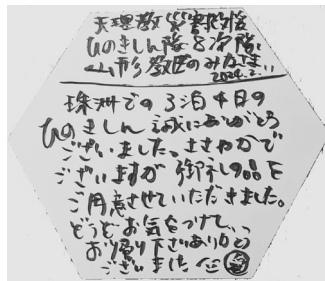 天理教災害救援
ひのきしん隊8次隊
山形教区のみなさま
2024.2.11
珠洲での3泊4日の
ひのきしん誠にありがとう
ございました。ささやかで
ございますが御礼の品を
ご用意させていただきました。
どうぞお気をつけて、
お帰り下さいありがとう
ございました